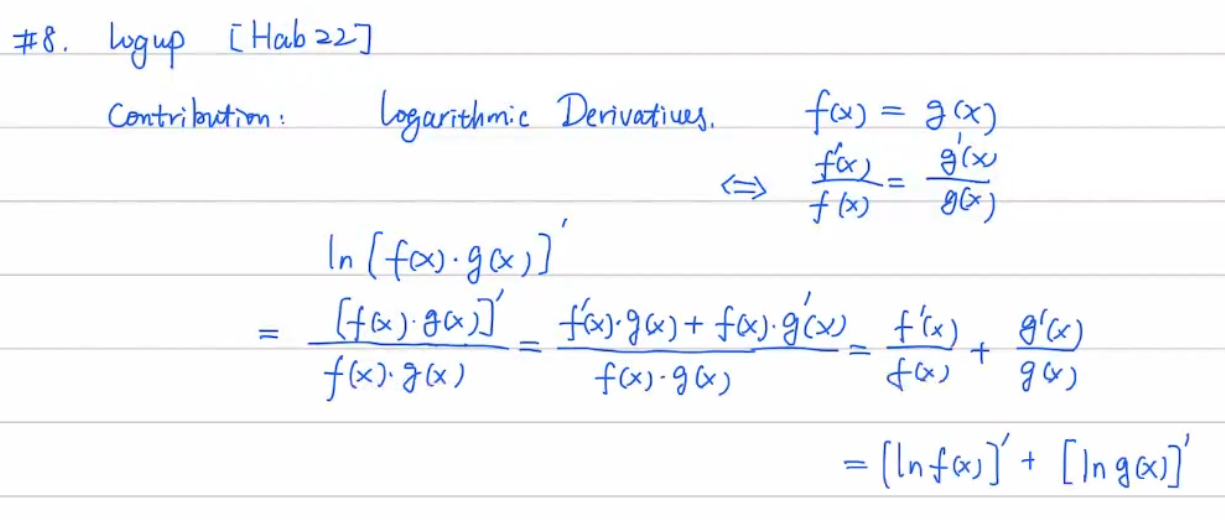 #8. Logup [Hab 22]
Contribution: Logarithmic Derivatives. f(x) = g(x)
⇔ f'(x)/f(x) = g'(x)/g(x)
ln [f(x)·g(x)]'
= [f(x)·g(x)]'/f(x)·g(x) = f'(x)·g(x) + f(x)·g'(x)/f(x)·g(x) = f'(x)/f(x) + g'(x)/g(x)
= [ln f(x)]' + [ln g(x)]'